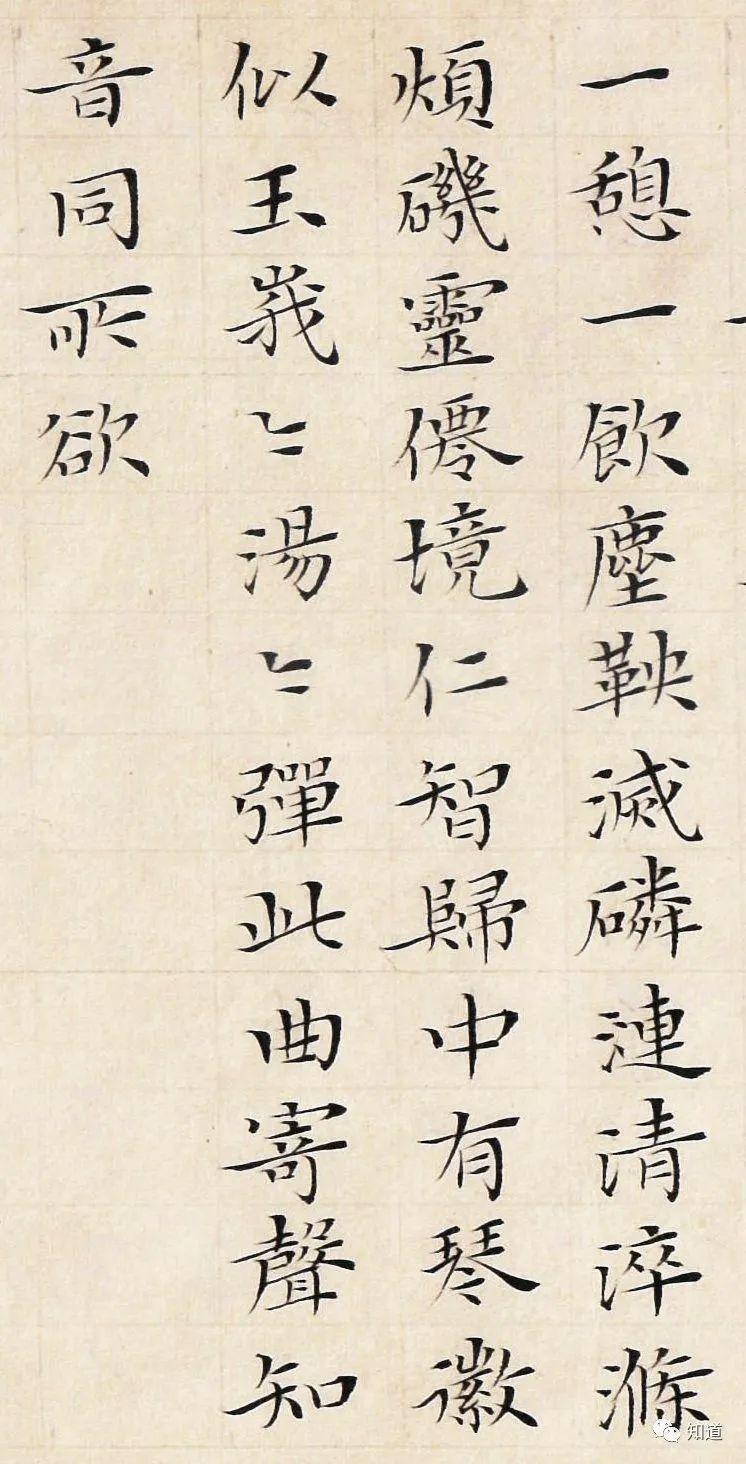 一憩一飲塵鞅滅磷漣清淬滌
煩磯靈僊境仁智歸中有琴徽
似玉峩〻湯〻彈此曲寄聲知
音同所欲
知道